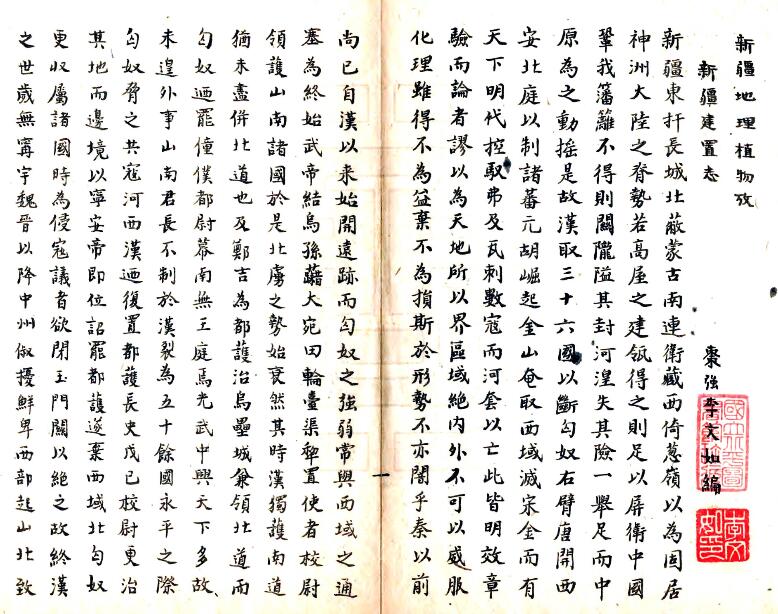 新疆地理植物攷
新疆建置志
棗强李文如編
新疆東扞長城北蔽蒙古南連衛藏西倚葱嶺以為固居
神洲大陸之脊勢若高屋之建瓴得之則足以屏衛中國
鞏我藩籬不得則關隴隘其封河湟失其險一舉足而中
原為之動搖是故漢取三十六國以斷匈奴右臂唐開西
安北庭以制諸蕃元胡崛起金山奄取西域滅宋金而有
天下明代控馭弗及瓦刺數寇而河套以亡此皆明效章
驗而論者謬以為天地所以界區域絕内外不可以威服
化理雖得不為益棄不為損斯於形勢不亦闇乎秦以前
尚已自漢以来始開遠跡而匈奴之強弱常與西域之通
塞為終始武帝結烏孫藉大宛田輪臺渠犂置使者校尉
領護山南諸國於是北虜之勢始衰然其時漢獨護南道
猶未盡併北道也及鄭吉為都護治烏壘城兼領北道而
匈奴迺罷僮僕都尉幕南無王庭焉光武中興天下多故
未遑外事山南君長不制於漢裂為五十餘國永平之際
匈奴脅之共寇河西漢迺復置都護長史戊已校尉更治
其地而邊境以寧安帝即位詔罷都護遂棄西域北匈奴
更収屬諸國時為侵寇議者欲閉玉門關以絶之故終漢
之世歲無寗宇魏晉以降中州俶擾鮮卑西部起山北致
李文
如印